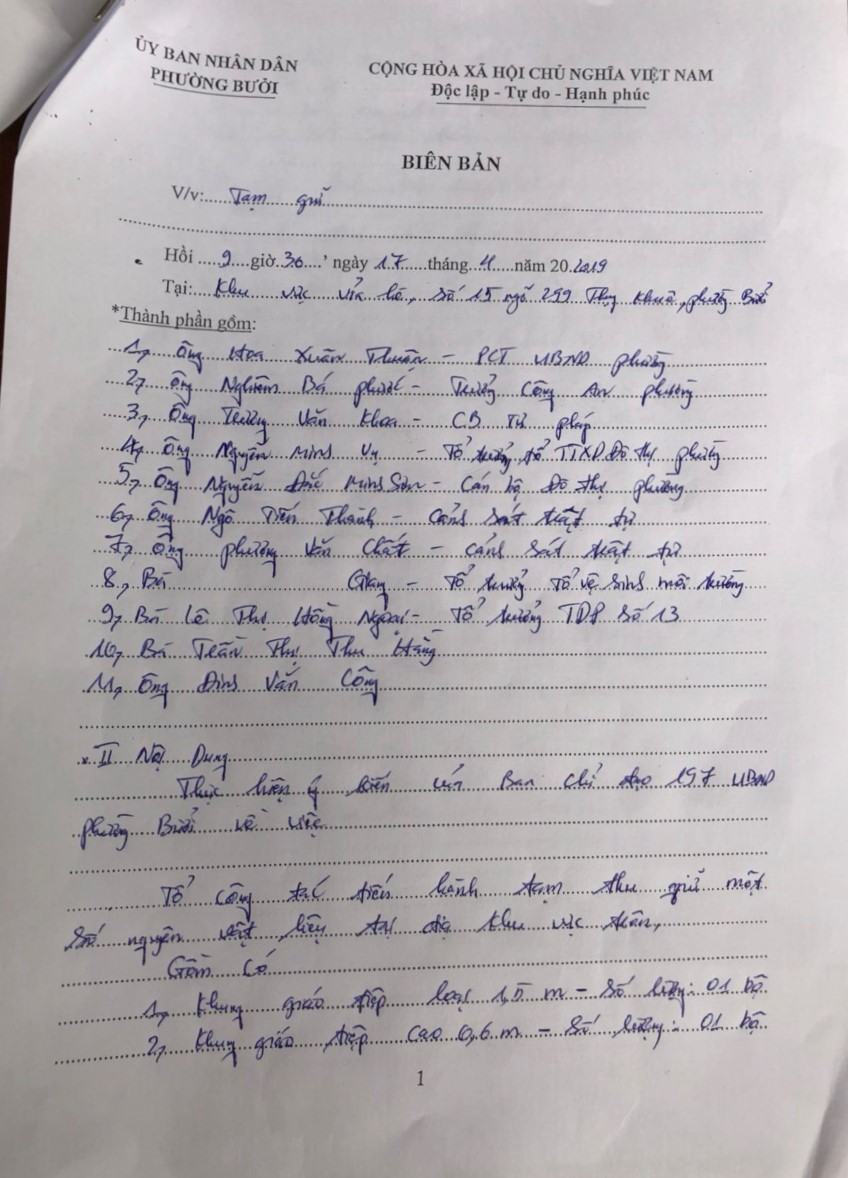 ỦY BAN NHÂN DÂN
PHƯỜNG BƯỞI
CỘNG HÒA XÃ HỘI CHỦ NGHĨA VIỆT NAM
Độc lập - Tự do - Hạnh phúc
BIÊN BẢN
V/v: Tạm giữ
Hồi 9 giờ 36' ngày 17 tháng 4 năm 20.2019
Tại: Khu vực vỉa hè, số 15 ngõ 299 Thụy Khuê, phường Bưởi
*Thành phần gồm:
1, Ông Hoa Xuân Thuận - PCT UBND phường
2, Ông Nghiêm Bá Phước - Trưởng Công An phường
3, Ông Trương Văn Khoa - CB Tư pháp
4, Ông Nguyễn Minh Vụ - Tổ trưởng tổ TTXD Đô thị phường
5, Ông Nguyễn Đắc Minh Sơn - Cán bộ Đô thị phường
6, Ông Ngô Tiến Thành - Cảnh sát trật tự
7, Ông Phương Văn Chất - Cảnh sát trật tự
8, Bà Giang - Tổ trưởng Tổ vệ sinh môi trường
9, Bà Lê Thị Hồng Ngoại - Tổ trưởng TDP số 13
10, Bà Trần Thị Thu Hằng
11, Ông Đinh Văn Công
II Nội Dung
Thực hiện ý kiến của Ban chỉ đạo 197 UBND
phường Bưởi về việc
Tổ công tác tiến hành tạm thu giữ một
số nguyên vật liệu tại địa khu vực trên,
Gồm có
1, Khung giáo tiệp loại 1,5 m - Số lượng: 01 bộ
2, Khung giáo tiệp cao 0,6 m - Số lượng: 01 bộ
1